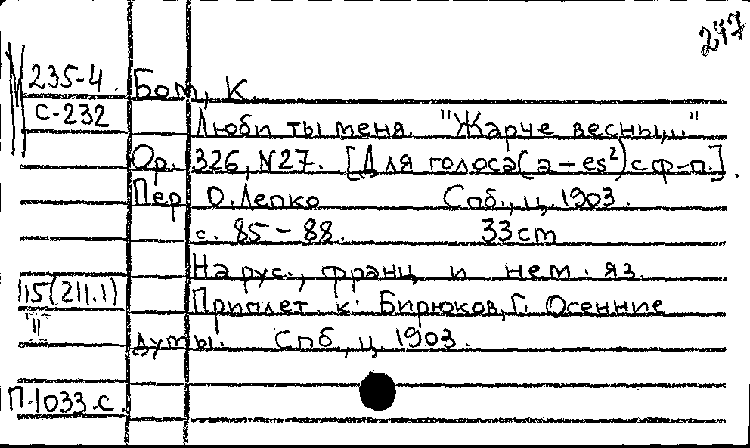 277
235-4. Бом, К.
С-232
Люби ты меня. "Жарче весны..."
Ор. 326, N27. [Для голоса(a-es²)с ф-п.].
Пер. О.Лепко Спб., ц. 1903.
с. 85-88. 33cm
На рус., франц. и нем. яз.
115(211.1) Приплет. к: Бирюков, Г. Осенние
"II"
думы. Спб., ц. 1903.
П-1033-с.